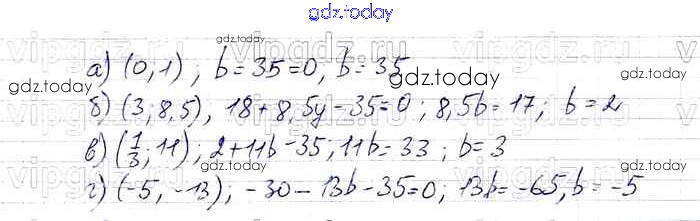 gdz.today
а) (0, 1) ; b = 35 = 0, b = 35
gdz.today
б) (3; 8,5), 18 + 8,5y - 35 = 0 ; 8,5b = 17 ; b = 2
в) (1/3; 11) ; 2 + 11b - 35 ; 11b = 33 ; b = 3
г) (-5, -13) ; -30 - 13b - 35 = 0 ; 13b = -65, b = -5
gdz.today
gdz.today
gdz.today
gdz.today